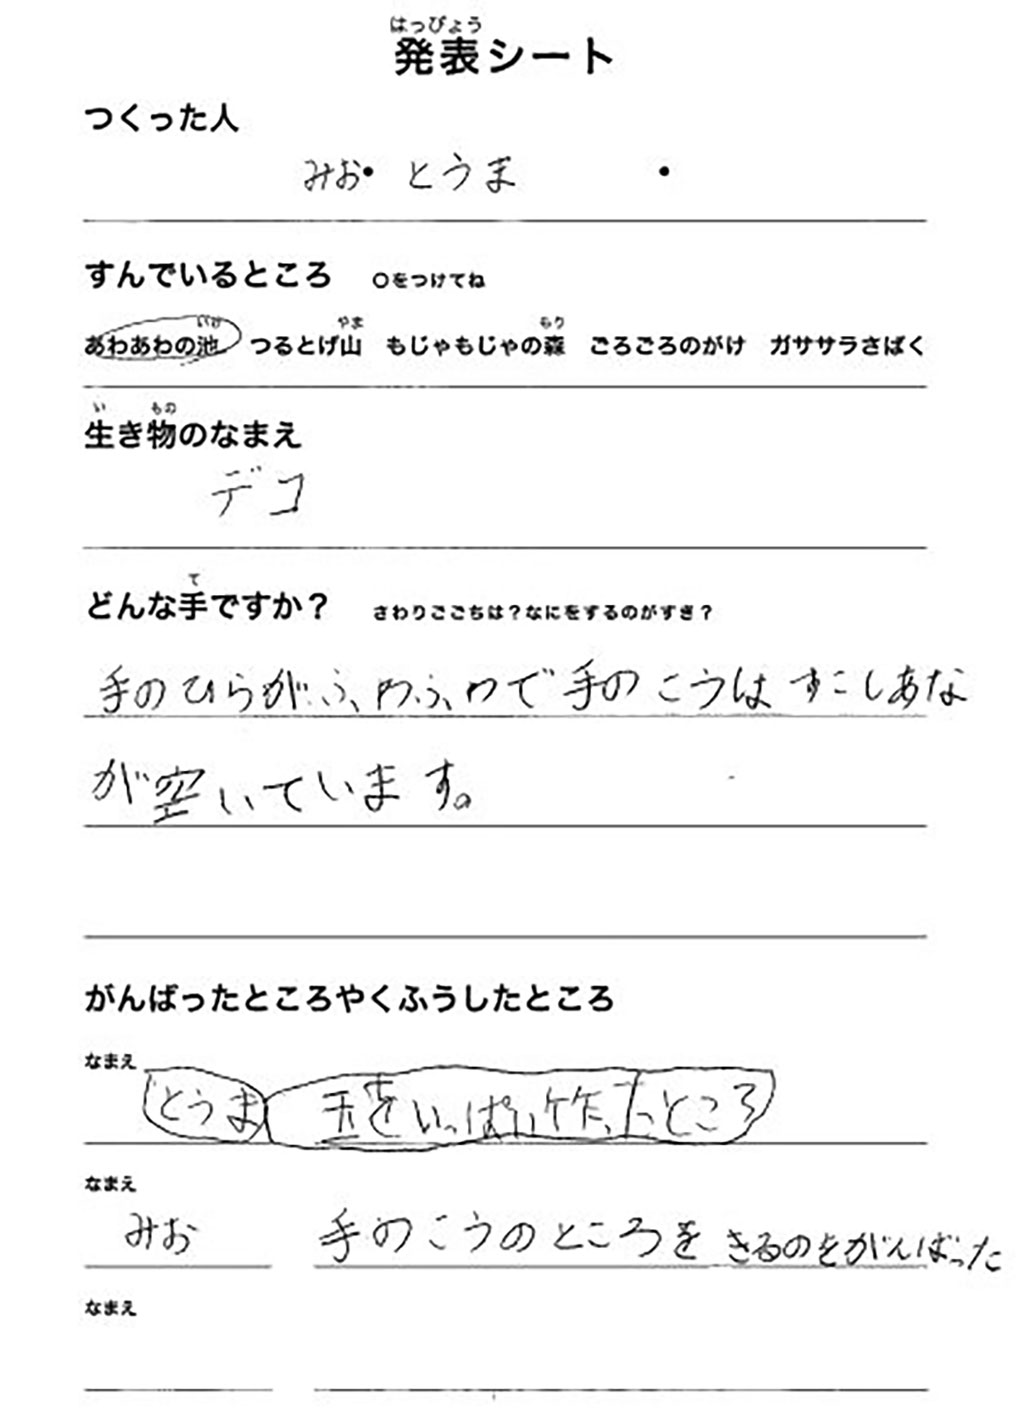 はっぴょう
発表シート
つくった人
みお・とうま ・
すんでいるところ ○をつけてね
いけ やま もり
あわあわの池 つるとげ山 もじゃもじゃの森 ごろごろのがけ ガササラさばく
い もの
生き物のなまえ
デコ
て
どんな手ですか? さわりごこちは?なにをするのがすき?
手のひらがふわふわで手のこうはすこしあな
が空いています。
がんばったところやくふうしたところ
なまえ
とうま 玉をいっぱい作ったところ
なまえ
みお 手のこうのところをきるのをがんばった
なまえ